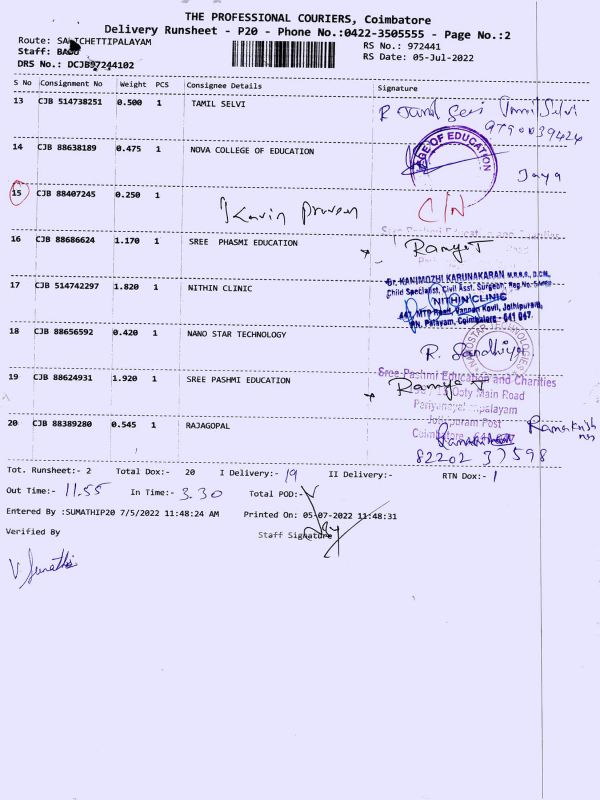 THE PROFESSIONAL COURIERS, Coimbatore
Delivery Runsheet - P20 - Phone No.:0422-3505555 - Page No.:2
Route: SALICHETTIPALAYAM
RS No.: 972441
Staff:
RS Date: 05-Jul-2022
DRS No.: DCJB97244102
S No Consignment No Weight PCS Consignee Details Signature
13 CJB 514738251 0.500 1 TAMIL SELVI
R Tamil Selvi
9790039424
14 CJB 88638189 0.475 1 NOVA COLLEGE OF EDUCATION
GE OF EDUCATION
Jaya
15 CJB 88407245 0.250 1
Kavin Praveen C/N
16 CJB 88686624 1.170 1 SREE PHASMI EDUCATION
Ramya T
17 CJB 514742297 1.820 1 NITHIN CLINIC
Dr. KANIMOZHI KARUNAKARAN M.B.B.S., D.C.H.,
Child Specialist, Civil Asst. Surgeon, Reg No.
NITHIN CLINIC
441, MTP Road, Vannan Kovil, Jothipuram,
P.N. Palayam, Coimbatore - 641 047.
18 CJB 88656592 0.420 1 NANO STAR TECHNOLOGY
R. Sandhiya
NANOSTAR TECHNOLOGIES
19 CJB 88624931 1.920 1 SREE PASHMI EDUCATION
Sree Pashmi Education and Charities
Ramya T
Ooty Main Road
Periyanaickenpalayam
Jothipuram Post
20 CJB 88389280 0.545 1 RAJAGOPAL
Coimbatore - 641 047
Ramakrish
82202 37598
Tot. Runsheet:- 2 Total Dox:- 20 I Delivery:- 19 II Delivery:- RTN Dox:- 1
Out Time:- 11.55 In Time:- 3.30 Total POD:-
Entered By :SUMATHIP20 7/5/2022 11:48:24 AM Printed On: 05-07-2022 11:48:31
Verified By Staff Signature
V. Sumathi